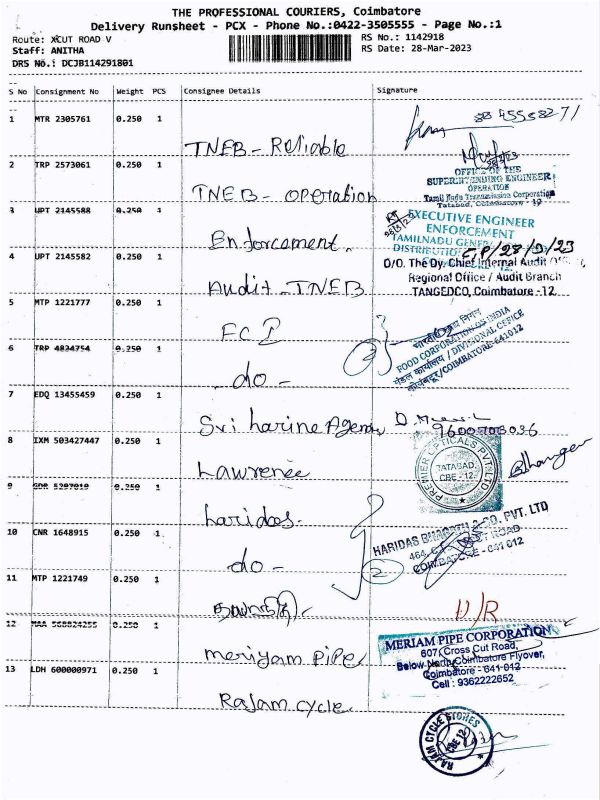 THE PROFESSIONAL COURIERS, Coimbatore
Delivery Runsheet - PCX - Phone No.:0422-3505555 - Page No.:1
Route: XCUT ROAD V
RS No.: 1142918
Staff: ANITHA
RS Date: 28-Mar-2023
DRS No.: DCJB114291801
S No Consignment No Weight PCS Consignee Details Signature
1 MTR 2305761 0.250 1
TNEB - Reliable
2 TRP 2573061 0.250 1
OFFICE OF THE
SUPERINTENDING ENGINEER
OPERATION
Tamil Nadu Transmission Corporation
Tatabad, Coimbatore - 12
TNEB - operation
3 UPT 2145588 0.250 1
EXECUTIVE ENGINEER
ENFORCEMENT
TAMILNADU
DISTRIBUTION
Enforcement
4 UPT 2145582 0.250 1
O/O. The Dy. Chief Internal Audit
Regional Office / Audit Branch
TANGEDCO, Coimbatore -12.
Audit - TNEB
5 MTP 1221777 0.250 1
FCI
भारतीय खाद्य निगम
FOOD CORPORATION OF INDIA
मंडल कार्यालय / DIVISIONAL OFFICE
कोयंबत्तूर/COIMBATORE-641012
6 TRP 4834754 0.250 1
- do -
7 EDQ 13455459 0.250 1
Sri harine Agency
9600708036
8 IXM 503427447 0.250 1
PREMIER OPTICALS PVT LTD
TATABAD,
CBE - 12.
Lawrence
9 SDR 5297019 0.250 1
haridas
10 CNR 1648915 0.250 1
HARIDAS BHAGATH & CO. PVT. LTD
COIMBATORE - 641 012
2
- do -
11 MTP 1221749 0.250 1
D/R
12 MAA 568824255 0.250 1
MERIAM PIPE CORPORATION
607, Cross Cut Road,
Below North Coimbatore Flyover,
Coimbatore - 641 012
Cell : 9362222652
meriyam Pipe
13 LDH 600000971 0.250 1
Rajam cycle
RAJAM CYCLE STORES
CBE 12